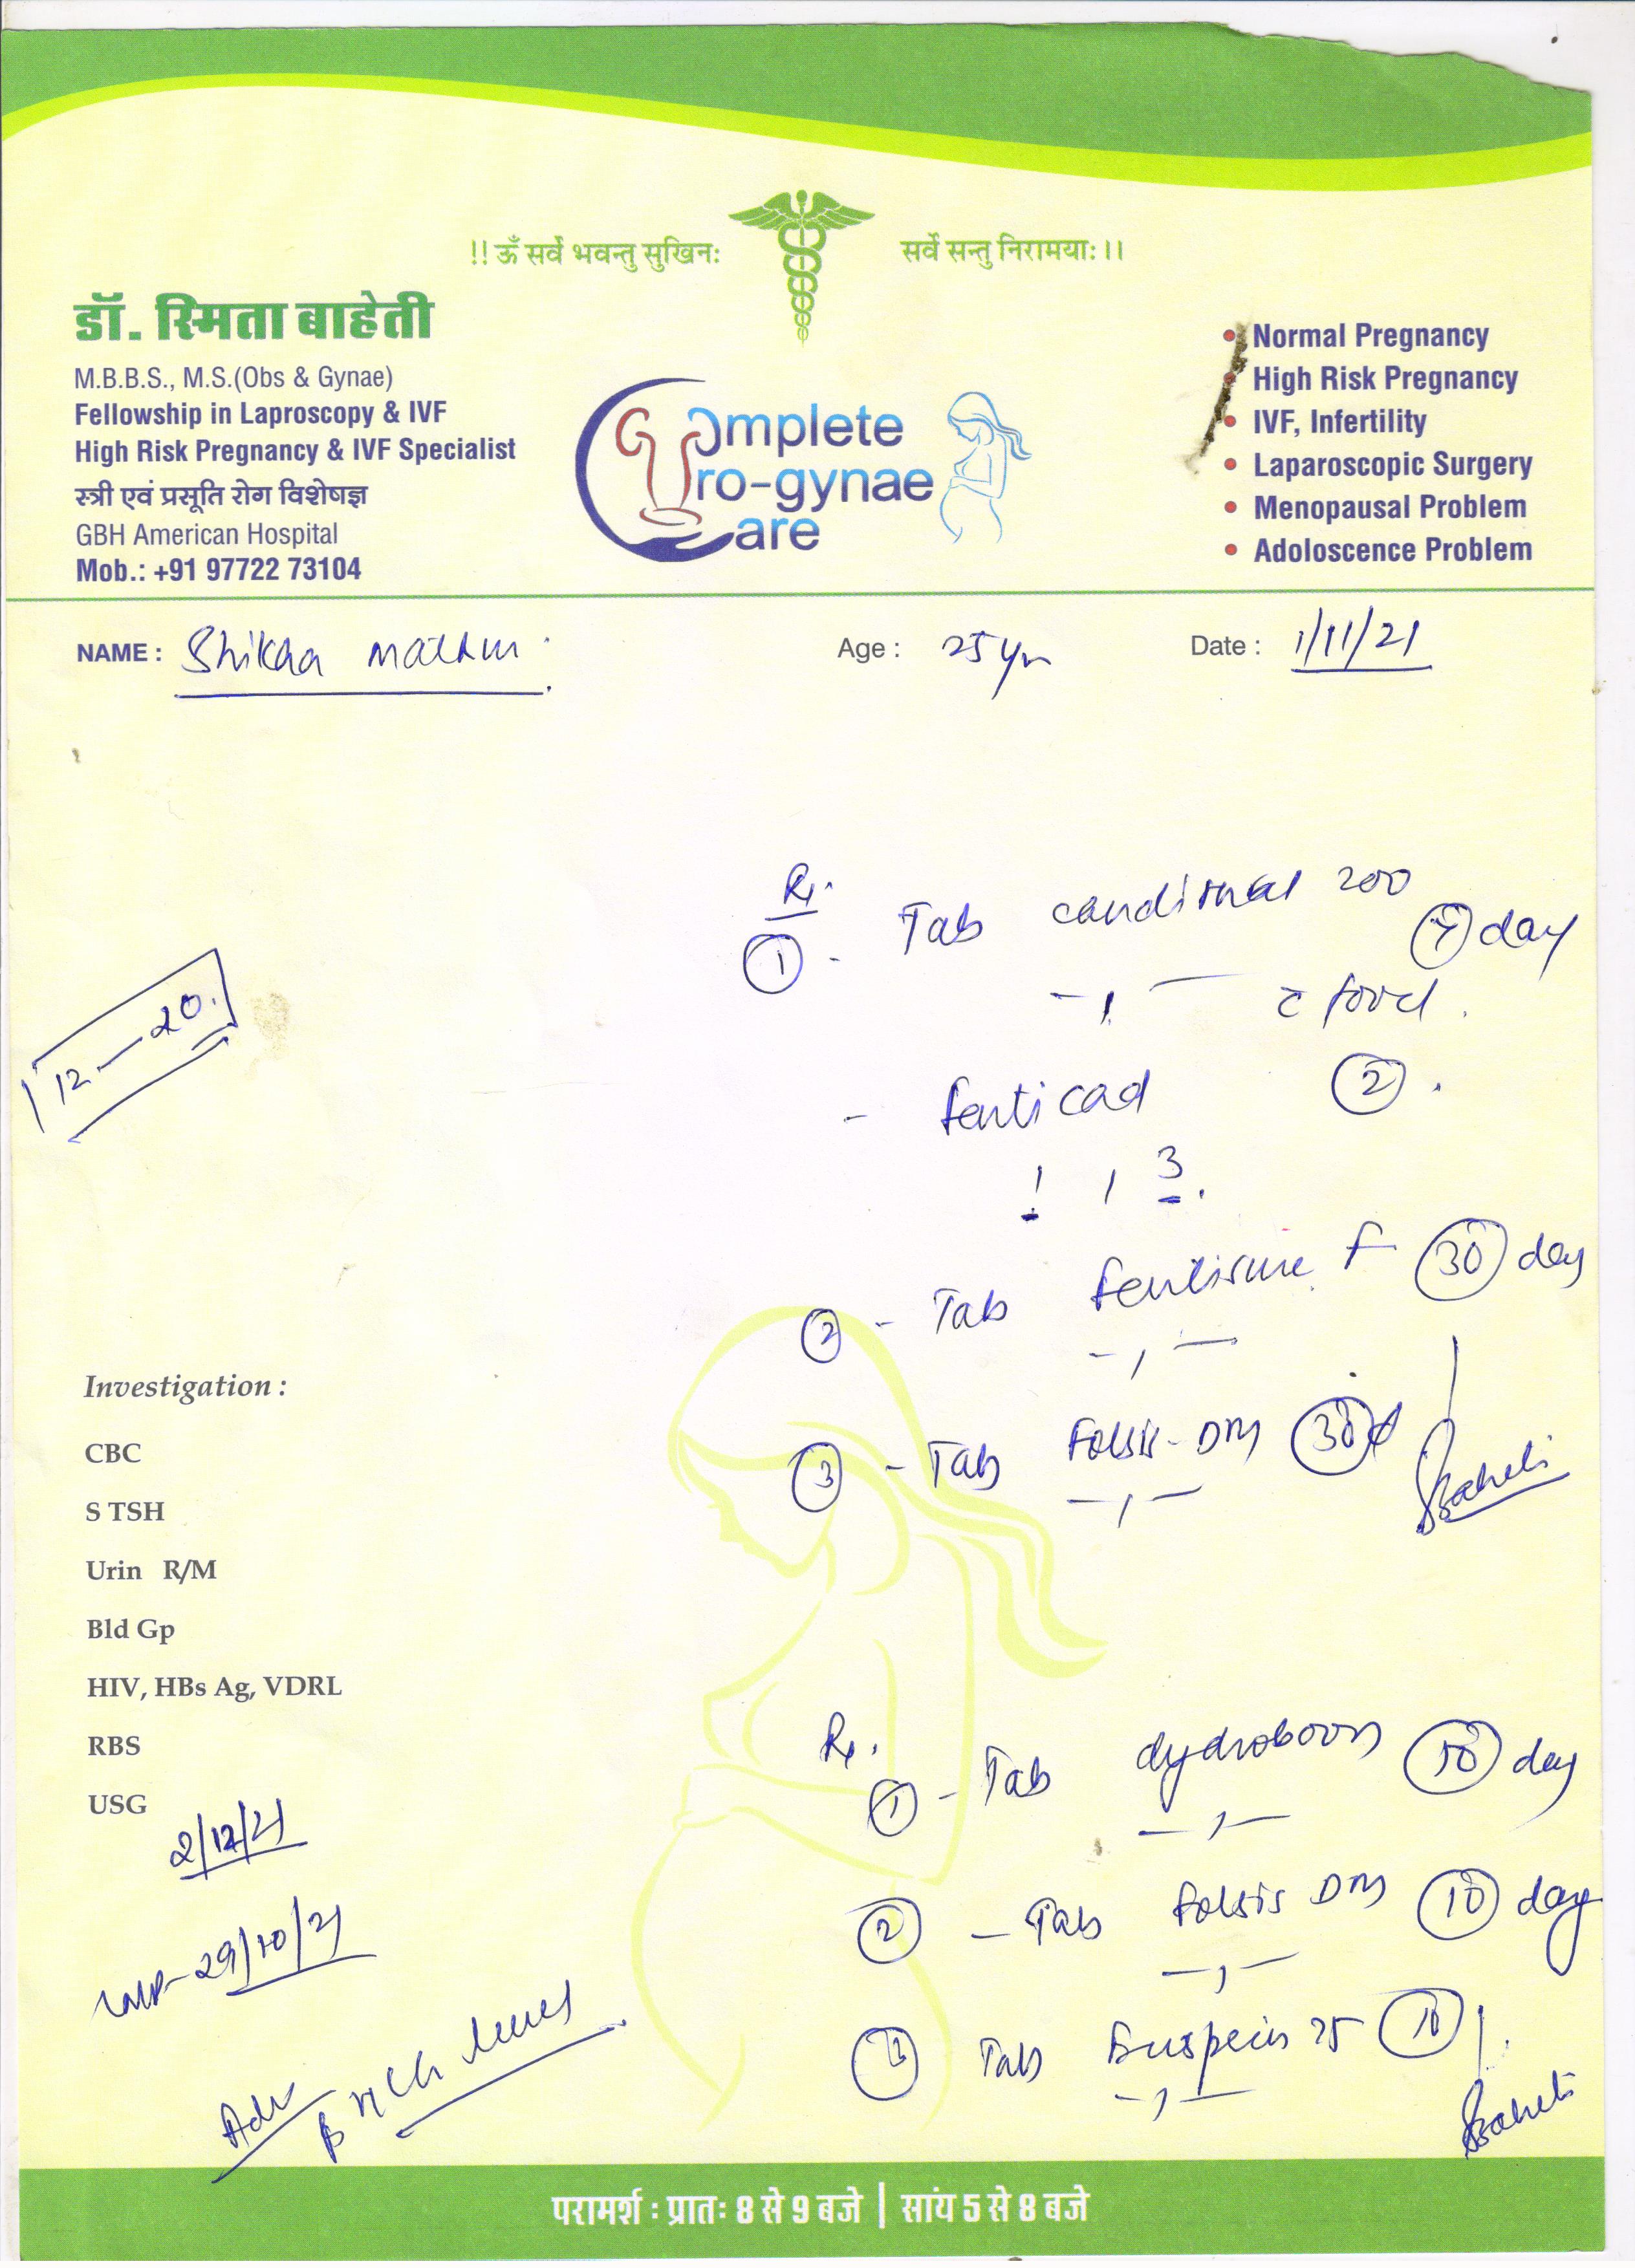 !! ॐ सर्वे भवन्तु सुखिनः सर्वे सन्तु निरामयाः ।।
डॉ. स्मिता बाहेती
M.B.B.S., M.S.(Obs & Gynae)
Fellowship in Laproscopy & IVF
High Risk Pregnancy & IVF Specialist
स्त्री एवं प्रसूति रोग विशेषज्ञ
GBH American Hospital
Mob.: +91 97722 73104
Complete
Uro-gynae
Care
• Normal Pregnancy
• High Risk Pregnancy
• IVF, Infertility
• Laparoscopic Surgery
• Menopausal Problem
• Adoloscence Problem
NAME : Shikha Mathur Age : 25 yr Date : 1/11/21
Rx.
① - Tab 200 day
- 1 - c food.
12 — 20.
- fenticad ②.
1 1 3.
② - Tab F 30 day
- 1 -
③ - Tab Folsis-DM 30 d
- 1 -
Baheti
Investigation :
CBC
S TSH
Urin R/M
Bld Gp
HIV, HBs Ag, VDRL
RBS
USG
2/12/21
LMP- 29/10/21
Adv
β HCG
Rx.
① - Tab dydroboon 10 day
- 1 -
② - Tab Folsis DM 10 day
- 1 -
Tab 10
- 1 -
Baheti
परामर्श : प्रातः 8 से 9 बजे | सांय 5 से 8 बजे